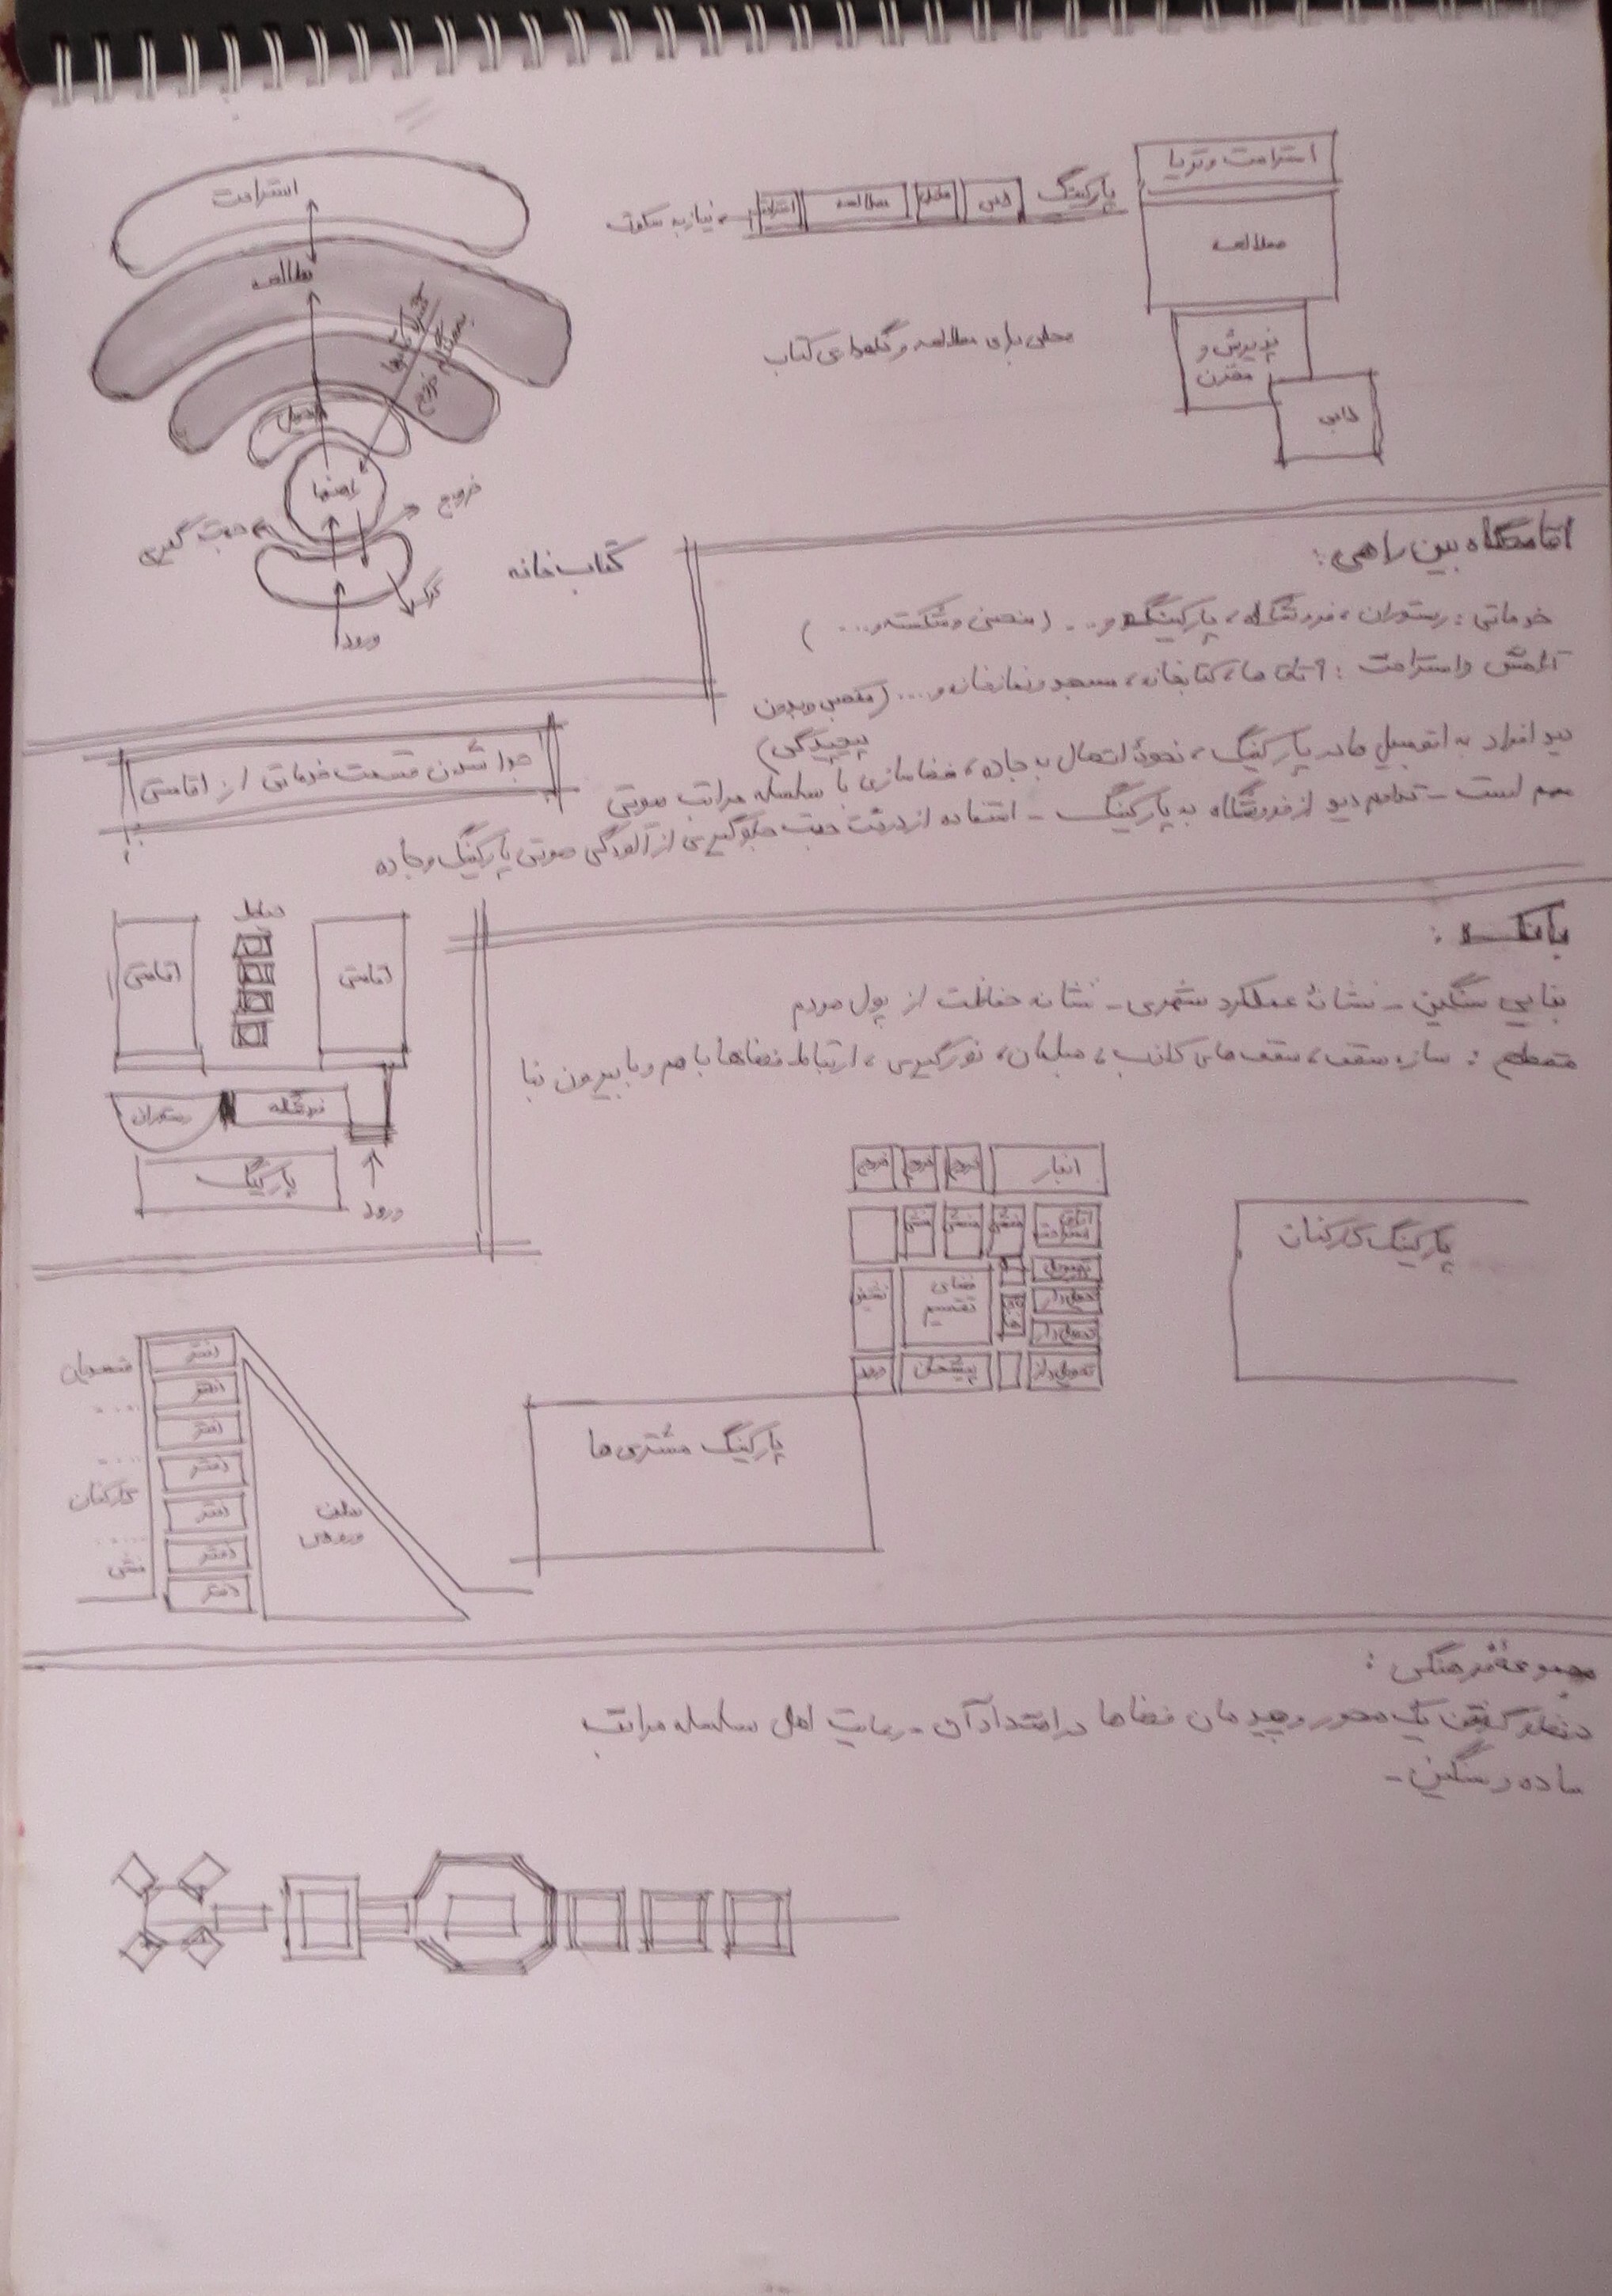 استراحت و تریا
مطالعه
پذیرش و
مخزن
لابی
پارکینگ
لابی
مخزن
مطالعه
استراحت
نیاز به سکوت
محلی برای مطالعه و نگهداری کتاب
استراحت
مطالعه
تحویل
راهنما
خروج
جهت گیری
ورود
کتاب خانه
اقامتگاه بین راهی:
خدماتی: رستوران، فروشگاه، پارکینگ و... (منحنی و شکسته و...)
آرامش و استراحت: اتاق ها، کتابخانه، مسجد و نمازخانه و.... (منحنی و بدون
پیچیدگی)
دید افراد به اتومبیل ها در پارکینگ، نحوهٔ اتصال به جاده، فضاسازی با سلسله مراتب صوتی
مهم است - تداوم دید از فروشگاه به پارکینگ - استفاده از درخت جهت جلوگیری از آلودگی صوتی پارکینگ و جاده
جدا شدن قسمت خدماتی از اقامتی
اقامتی
اقامتی
رستوران
فروشگاه
پارکینگ
ورود
بانک:
بنایی سنگین - نشانهٔ عملکرد شهری - نشانه حفاظت از پول مردم
مقطع: سازه سقف، سقف های کاذب، مبلمان، نورگیری، ارتباط فضاها با هم و با بیرون بنا
انبار
فرم
فرم
فرم
اتاق
استراحت
منشی
منشی
منشی
فضای
تقسیم
تحویل دار
تحویل دار
تحویل دار
پیشخوان
ورود
پارکینگ کارکنان
پارکینگ مشتری ها
دفتر
دفتر
دفتر
دفتر
دفتر
دفتر
دفتر
کارکنان
منشی
سالن
ورودی
مجموعهٔ فرهنگی:
در نظر گرفتن یک محور و چیدمان فضاها در امتداد آن - رعایت اصل سلسله مراتب
ساده و سنگین -